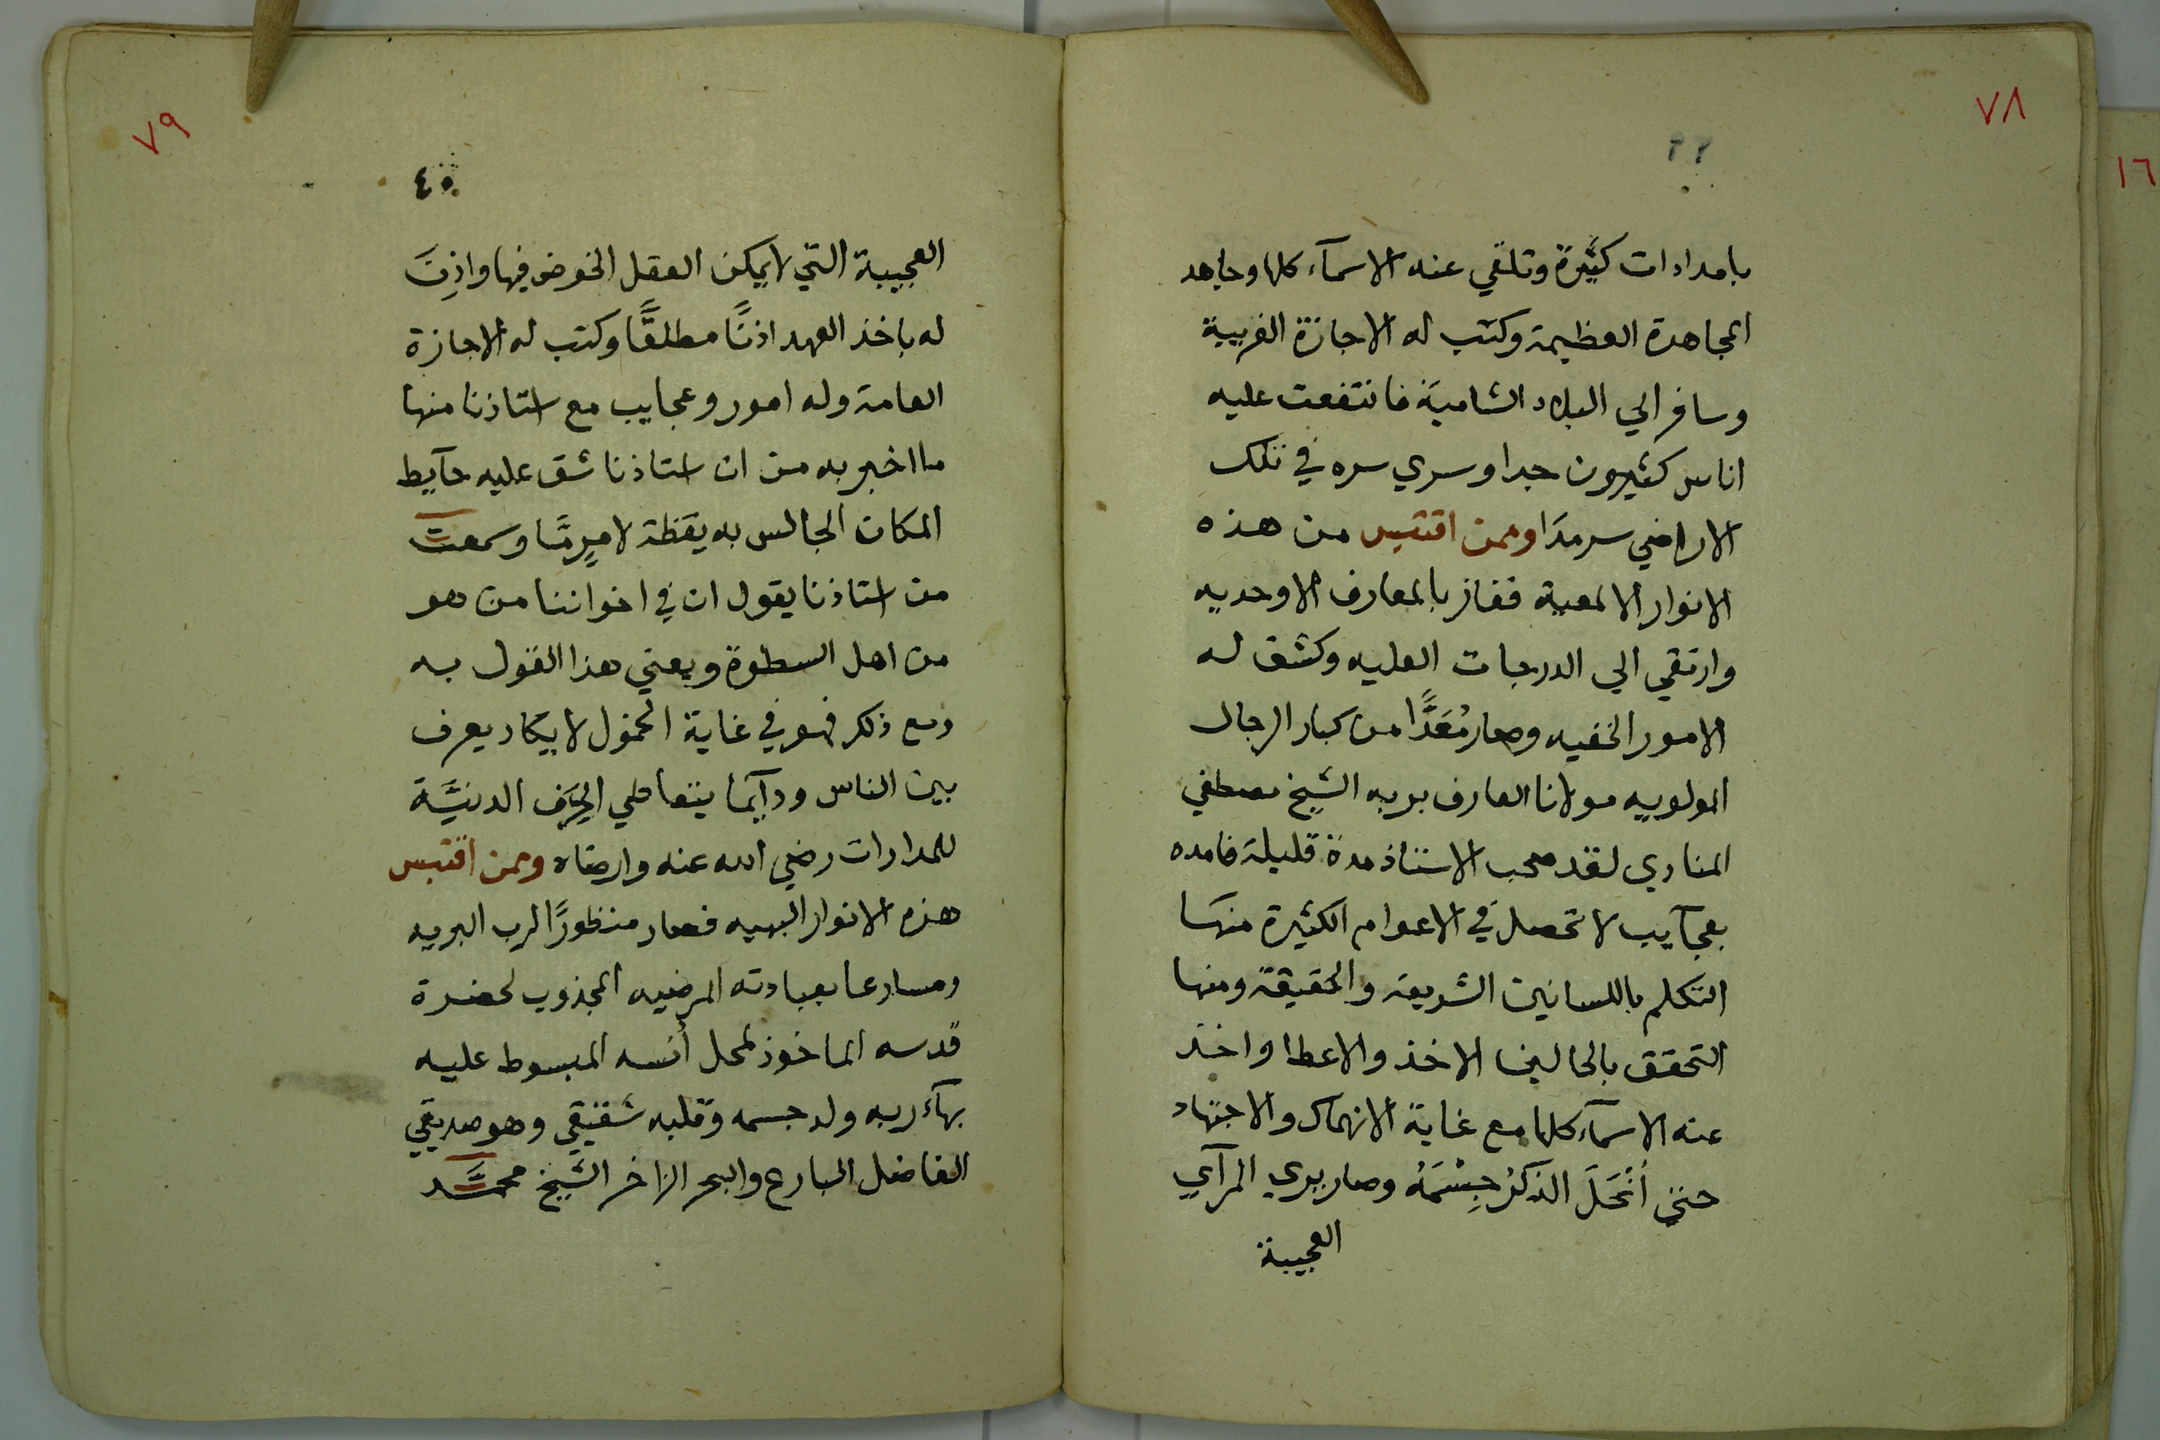 ٧٨
بامدادات كثيرة وتلقي عنه الاسمآء كلها وجاهد
المجاهدة العظيمة وكتب له الاجازة الغريبة
وسافر الي البلاد الشامية فانتفعت عليه
اناس كثيرون جدا وسري سره في تلك
الاراضي سرمدَا وممن اقتبس من هذه
الانوار الالمعية ففاز بالمعارف الاوحديه
وارتقي الي الدرجات العليه وكشف له
الامور الخفيه وصار مُعَدًّا من كبار الرجال
المولويه مولانا العارف بربه الشيخ مصطفي
المناوي لقد صحب الاستاذ مدة قليلة فامده
بعجآيب لا تحصل في الاعوام الكثيرة منها
التكلم باللسانين الشريعة والحقيقة ومنها
التحقق بالحالين الاخذ والاعطا واخذ
عنه الاسمآء كلها مع غاية الانهماك والاجتهاد
حتي اَنْحَلَ الذكرُ جِسْمَهُ وصار يري المرآي
العجيبة
٧٩
٤٠
العجيبة التي لا يمكن العقل الخوض فيها واذِنَ
له باخذ العهد اذنًا مطلقًا وكتب له الاجازة
العامة وله امور وعجايب مع استاذنا منها
ما اخبر به من ان استاذنا شق عليه حآيط
المكان الجالس به يقظة لا مرمًا وسمعت
من استاذنا يقول ان في اخواننا من هو
من اهل السطوة ويعني هذا القول به
ومع ذلك فهو في غاية الخمول لا يكاد يعرف
بين الناس ودآيما يتعاطي الحِرَف الدنيَّة
للمدارات رضي الله عنه وارضاه وممن اقتبس
هذه الانوار البهيه فصار منظورًا لرب البريه
ومسارعا بعبادته المرضيه المجذوب لحضرة
قدسه الماخوذ لمحل أنسه المبسوط عليه
بهآء ربه ولد جسمه وقلبه شقيقي وهو صديقي
الفاضل البارع والبحر الزاخر الشيخ محمَّد
١٦